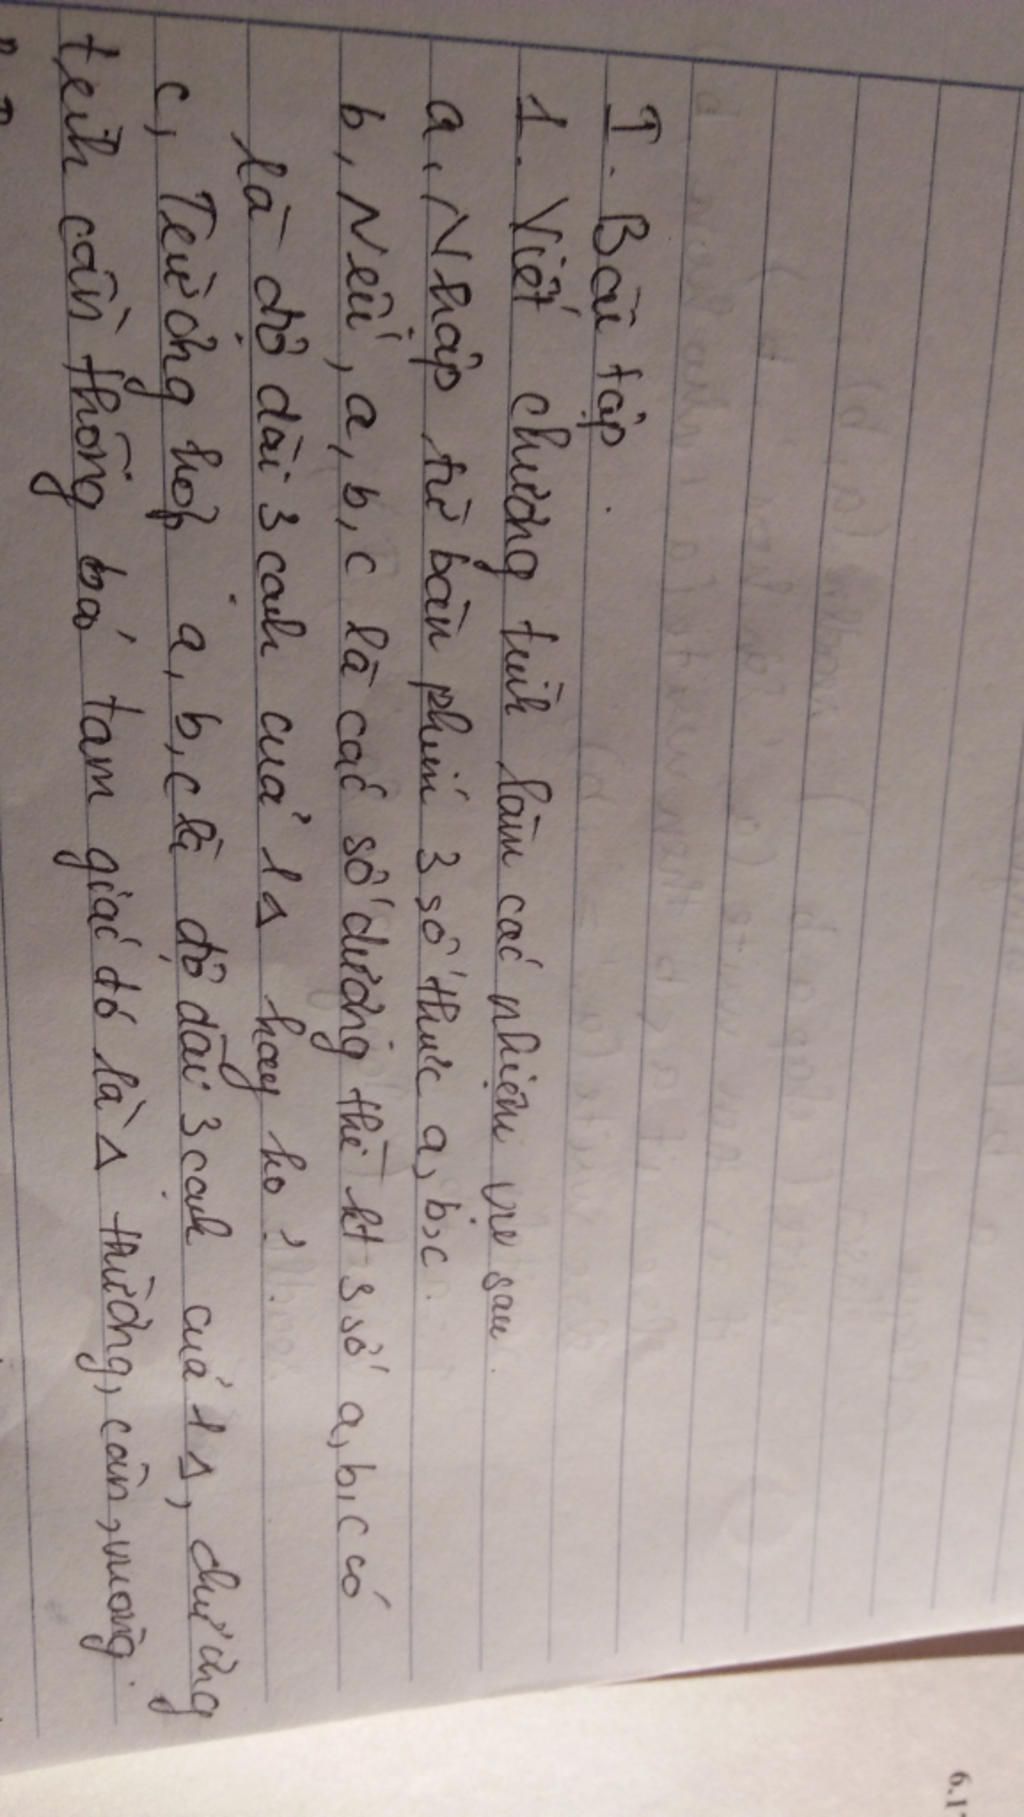 I. Bài tập.
1. Viết chương trình làm các nhiệm vụ sau.
a, Nhập từ bàn phím 3 số thực a, b, c.
b, Nếu, a, b, c là các số dương thì kt 3 số a, b, c có
là độ dài 3 cạnh của 1 Δ hay ko?
c, Trường hợp a, b, c là độ dài 3 cạnh của 1 Δ, chương
trình cần thông báo tam giác đó là Δ thường, cân, vuông.
6.1